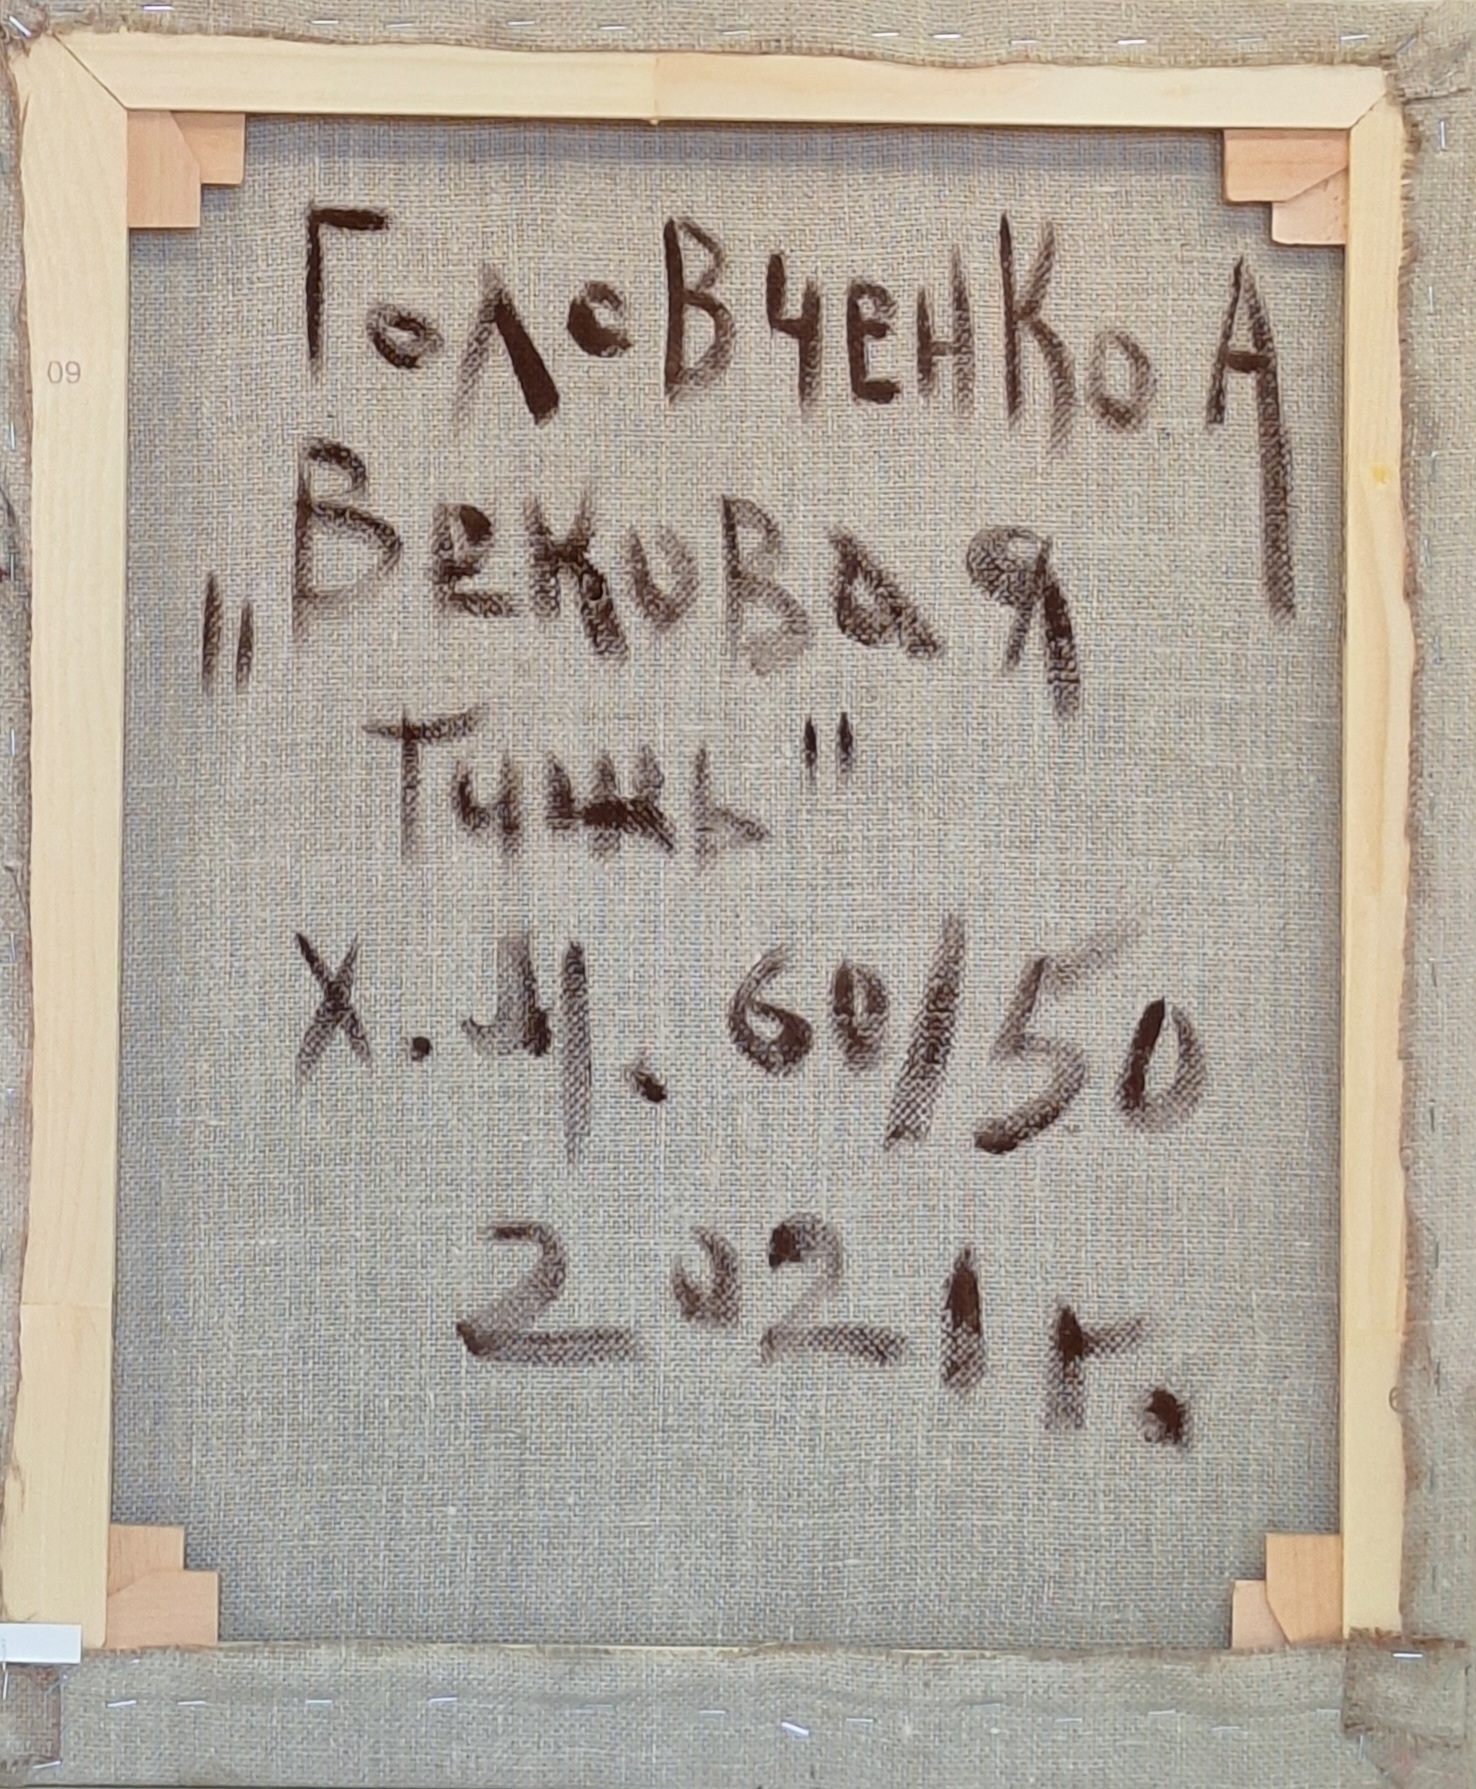 Головченко А
„Вековая
Тужь"
09
х.м. 60/50
2021г.